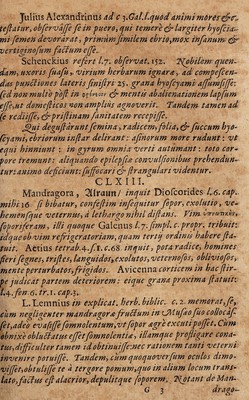 Julius Alexandrinus ad c 3.Gal.l.quod animi mores &c.
testatur, observasse se in puero, qui temerè & largiter hyoscia-
mi semen devorarat, primùm similem ebrio, mox insanum &
vertiginosum factum esse.
Schenckius refert l.7. observat.152. Nobilem quen-
dam, uxoris suasu, virium herbarum ignarœ, ad compescen-
das punctiones lateris sinistri 25. grana hyoscyami assumsisse:
sed non multò post in & mentis abalienationem lapsum
esse, ut domesticos non amplius agnoverit. Tandem tamen ad
se rediisse, & pristinam sanitatem recepisse.
Qui degustârunt semina, radicem, folia, & succum hyo-
scyami, ebriorum instar delirant: asinorum more rudunt: ut
equi hinniunt: in gyrum omnia verti autumant: toto cor-
pore tremunt: aliquando epilepsiæ convulsionibus prehendun-
tur: animo deficiunt: suffocari & strangulari videntur.
CLXIII.
Mandragora, Alraun/ inquit Dioscorides l.6. cap.
mihi 16. si bibitur, confestim insequitur sopor, exolutio, ve-
hemensque veternus, à lethargo nihil distans. Vim
soporiferam, illi quoque Galenus l.7. simpl. c. propr. tribuit:
idq; ob vim refrigeratoriam, quam tertio ordini habere sta-
tuit. Aetius tetrab.4. s.1. c.68. inquit, pota radice, homines
fieri segnes, tristes, languidos, exolutos, veternosos, obliviosos,
mente perturbatos, frigidos. Avicenna corticem in hac stir-
pe judicat partem deteriorem: eiq; grana proxima statuit:
l.4. fen 6. tr.1. cap.3.
L. Lemnius in explicat. herb. biblic. c.2. memorat, se,
cùm negligenter mandragoræ fructum in Musæo suo collocas-
set, adeò evasisse somnolentum, ut sopor ægrè excuti posset. Cùm
obnixè obluctatus esset somnolentiæ, illamque profligare cona-
tus, difficulter tamen id obtinuisse: nec rationem tanti veterni
invenire potuisse. Tandem, cùm quoquoversum oculos dimo-
visset, obtulisse te à tergore pomum, quo in alium locum trans-
lato, factus est alacrior, depulitque soporem. Notant de Man-
G 3 drago-